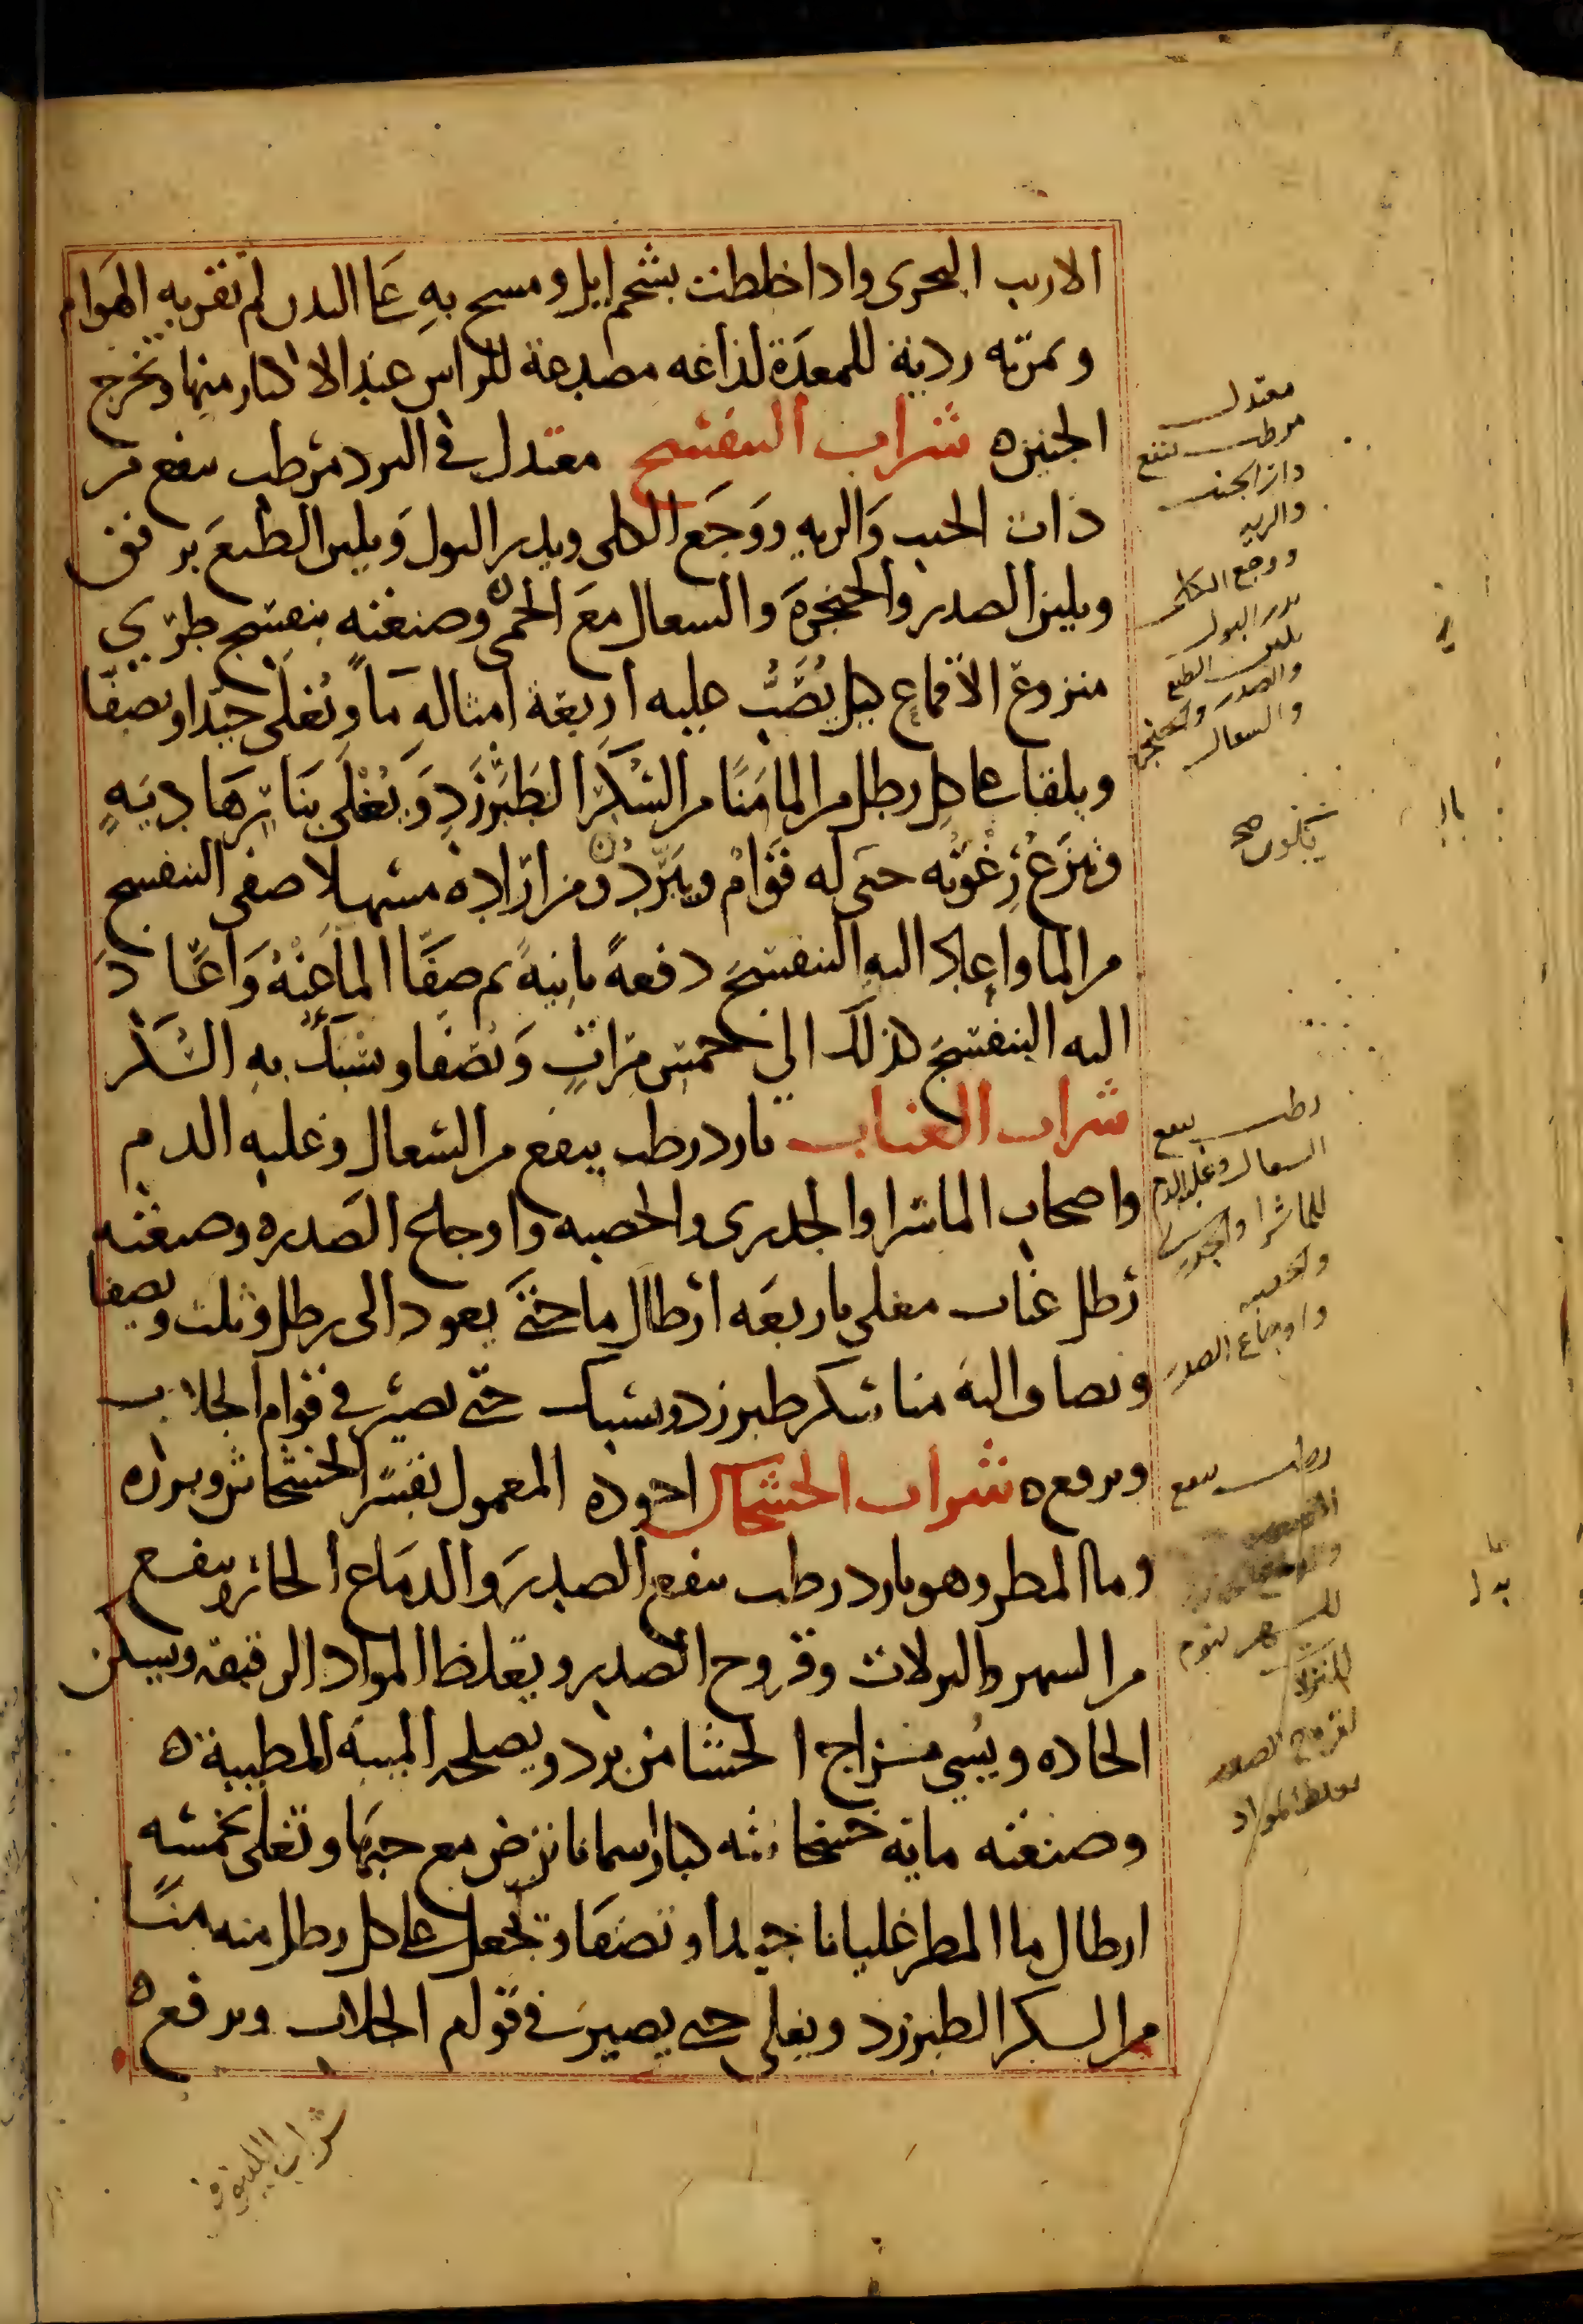 الارنب البحرى واذا خلطت بشحم ايل ومسح به على البدن لم تقربه الهوام
وثمرته ردية للمعدة لذاغه مصدعة للراس عند الاكثار منها وتخرج
الجنين ه شراب البنفسج معتدل في البرد مرطب ينفع من
ذات الجنب والريه ووجع الكلى ويدر البول ويلين الطبع برفق
ويلين الصدر والحنجرة والسعال مع الحمى ه وصنعته بنفسج طري
منزوع الاقماع كيل يصب عليه اربعة امثاله ما ويغلى جيدا ويصفا
ويلقا على كل رطل من الما منا من السكر الطبرزد ويغلى بنار هادية
وتنزع رغوته حتى له قوام ويبرد ه ومن اراده مسهلا صفى البنفسج
من الما واعاد اليه البنفسج دفعة ثانية ثم صفا الما عنه واعاد
اليه البنفسج كذلك الى خمس مرات ويصفا ويسبك به السكر
شراب العناب بارد رطب ينفع من السعال وغلبه الدم
واصحاب الماشرا والجدرى والحصبه واوجاع الصدر ه وصنعته
رطل عناب مغلى باربعه ارطال ما حتى يعود الى رطل وثلث ويصفا
ويضاف اليه منا سكر طبرزد ويسبك حتى يصير في قوام الجلاب
ويرفع ه شراب الخشخاش اجوده المعمول بقشر الخشخاش وبزره
وما المطر وهو بارد رطب ينفع الصدر والدماغ الحار وينفع
من السهر والنزلات وقروح الصدر ويغلظ المواد الرقيقه ويسكن
الحاده ويسي مزاج الحشا من برد ويصلحه الميبه المطيبة ه
وصنعته مايه خشخاشه كبار اسمانا ترض مع حبها وتغلى بخمسه
ارطال ما المطر غليانا جيدا وتصفا وتجعل على كل رطل منه منا
من السكر الطبرزد ويغلى حتى يصير في قوام الجلاب ويرفع ه
معتدل
مرطب ينفع
ذات الجنب
والريه
ووجع الكلى
يدر البول
يلين الطبع
والصدر والحنجرة
والسعال
يكون صح
رطب ينفع
السعال وغلبه الدم
للماشرا والجدرى
والحصبه
واوجاع الصدر
رطب ينفع
للسهر ينوم
للنزلا
لقروح الصدر
يغلظ المواد
شراب اللينوفر